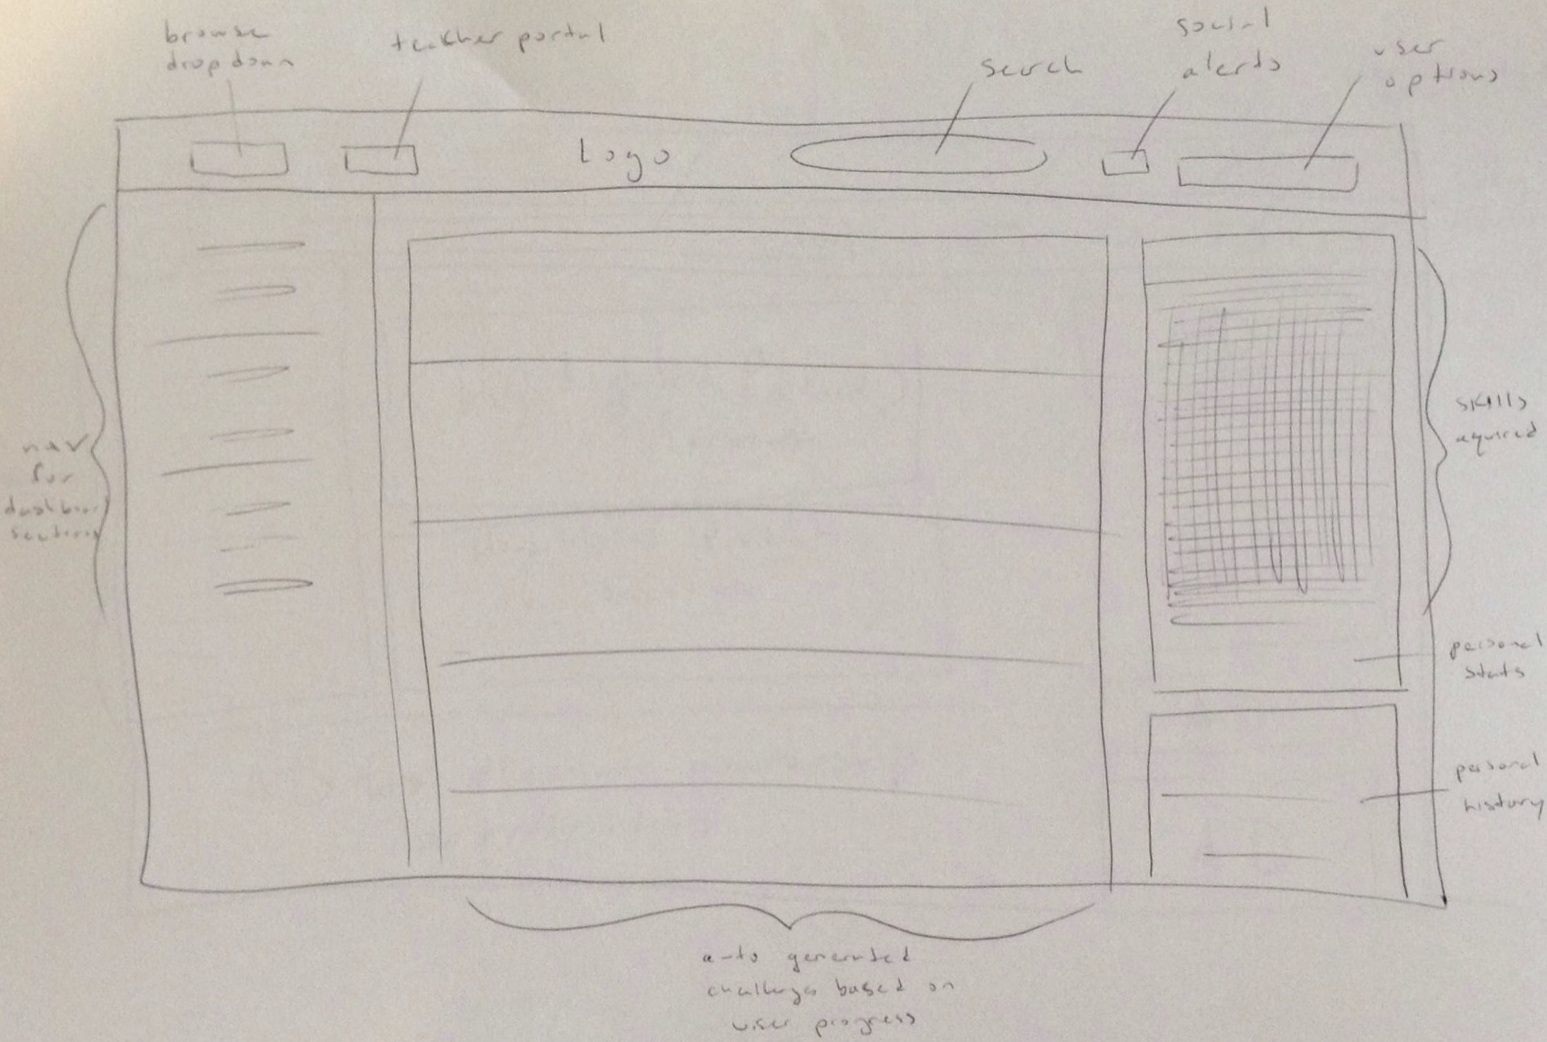 browse
dropdown
teacher portal
search
social
alerts
user
options
Logo
nav
for
dashboard
sections
skills
aquired
personal
stats
personal
history
auto generated
challenges based on
user progress